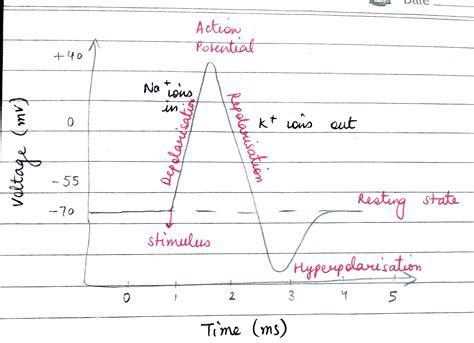 Date
Action
Potential
+40
Na+ ions
in
Depolarisation
Repolarisation
K+ ions out
0
Voltage (mv)
-55
-70
Resting state
stimulus
Hyperpolarisation
0 1 2 3 4 5
Time (ms)